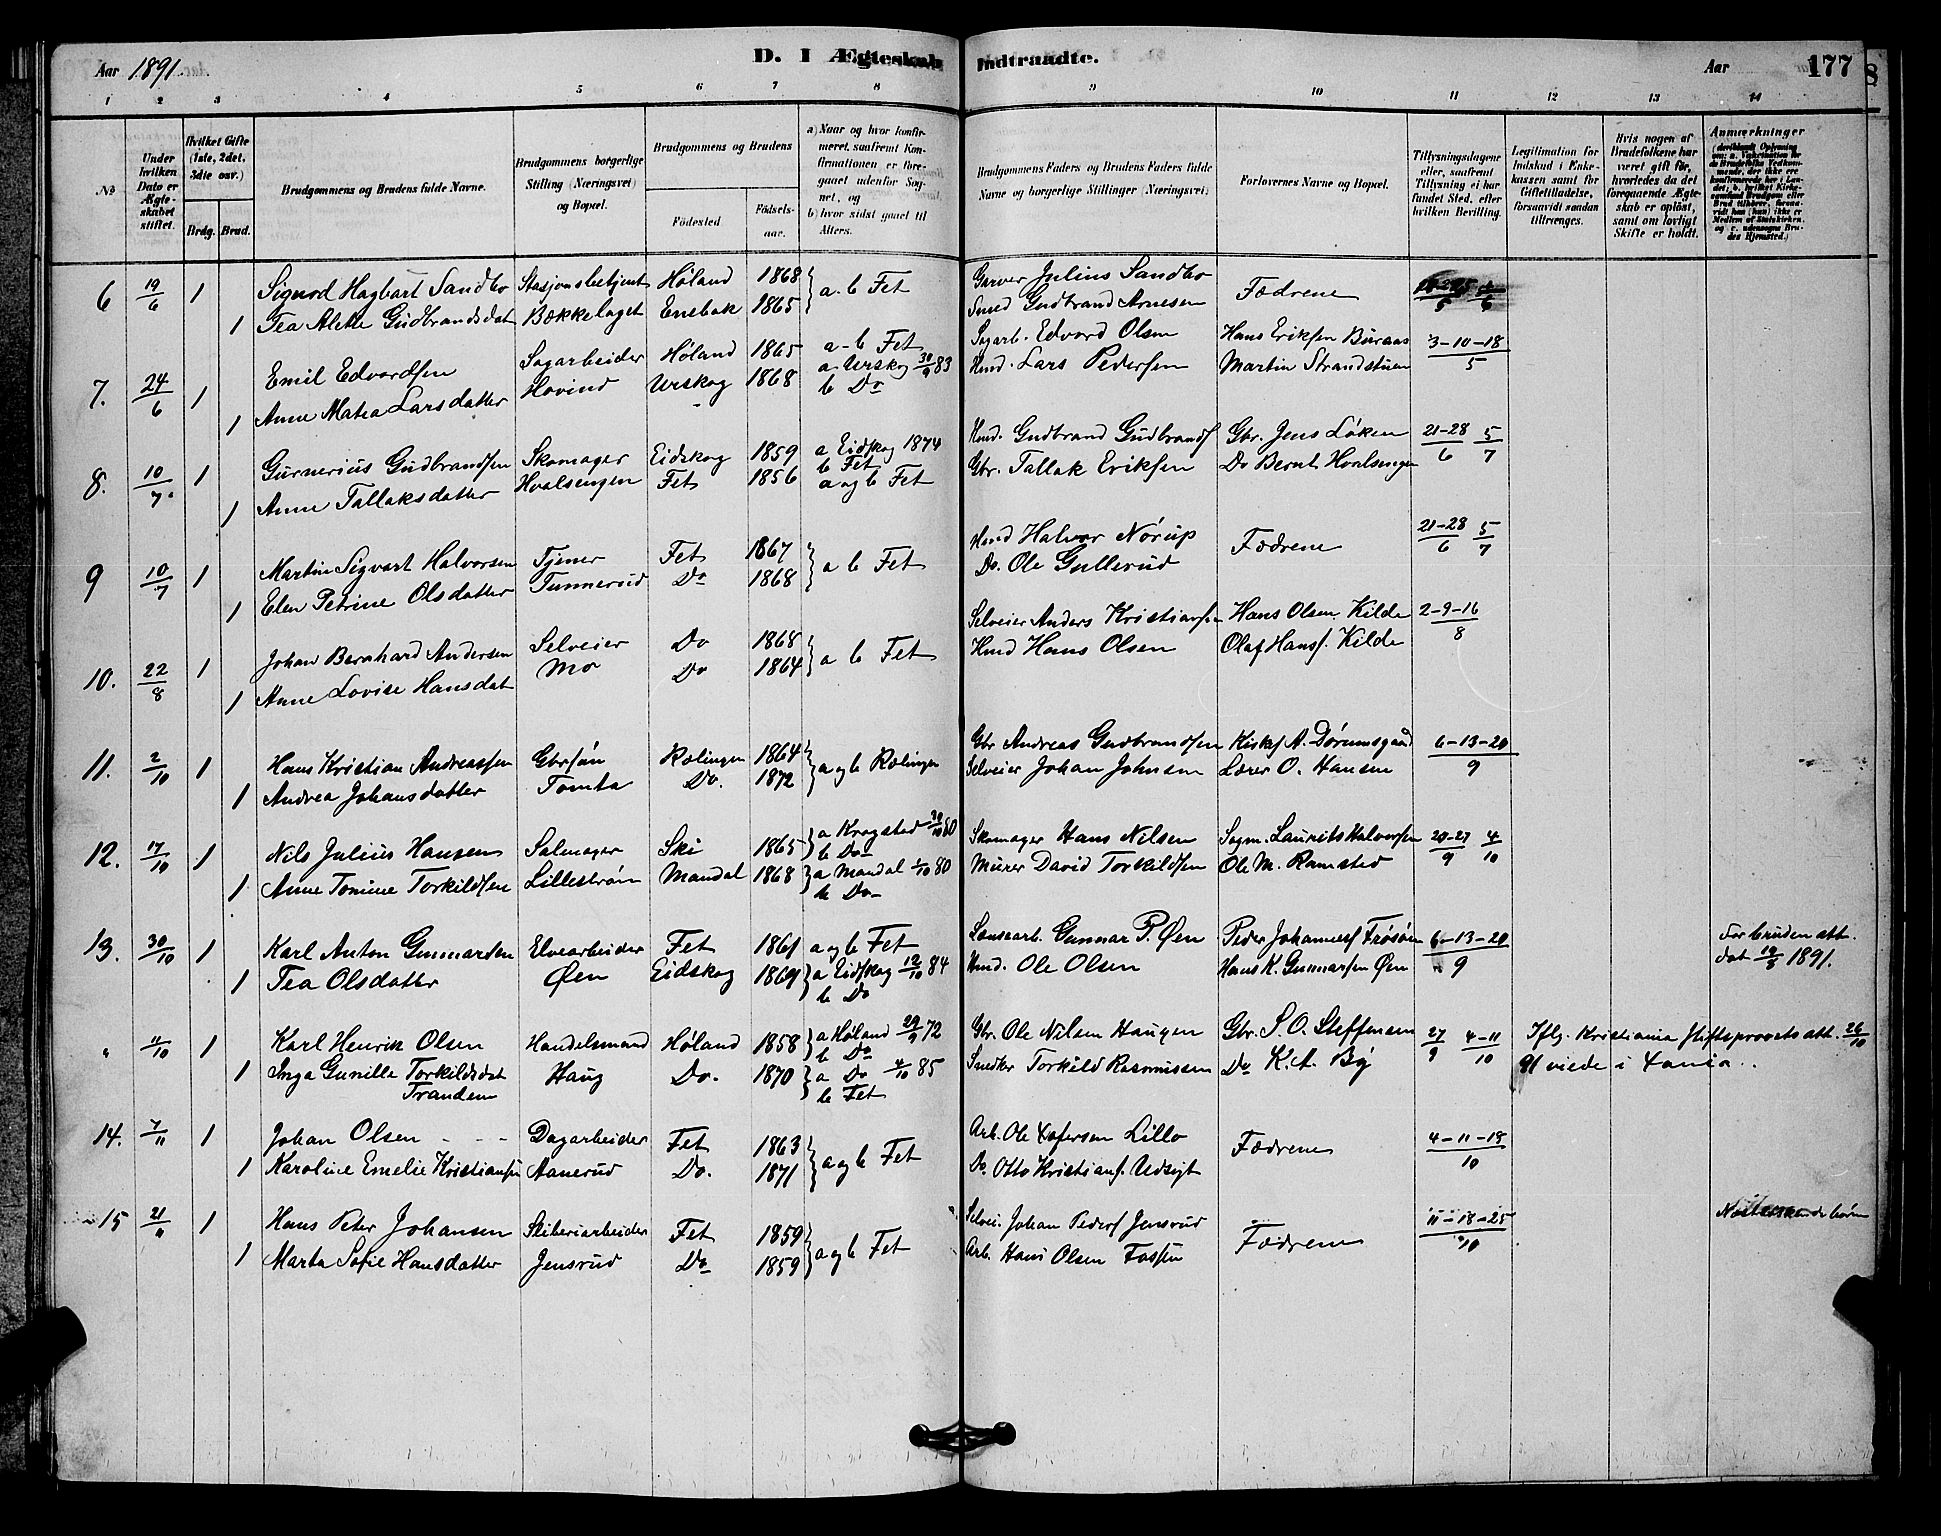 D. I Ægteskab Indtraadte.
Aar 1891.
Aar 177
1 2 3 4 5 6 7 8 9 10 11 12 13 14
No
Under hvilken Dato er Ægteskabet stiftet.
Hvilket Gifte (1ste, 2det, 3die osv.)
Brdg. Brud.
Brudgommens og Brudens fulde Navne.
Brudgommens borgerlige Stilling (Næringsvei) og Bopæl.
Brudgommens og Brudens
Födested. Födselsaar.
a) Naar og hvor konfirmeret, saafremt Konfirmationen er foregaaet udenfor Sognet, og
b) hvor sidst gaaet til Alters.
Brudgommens Faders og Brudens Faders fulde Navne og borgerlige Stillinger (Næringsvei)
Forlovernes Navne og Bopæl.
Tillysningsdagene eller, saafremt Tillysning ei har fundet Sted, efter hvilken Bevilling.
Legitimation for Indskud i Enkekassen samt for Giftetilladelse, forsaavidt saadan tiltrænges.
Hvis nogen af Brudefolkene har været gift för, hvorledes da det foregaaende Ægteskab er oplöst, samt om lovligt Skifte er holdt.
Anmærkninger
6 19/6 1 Sigvod Hagbart Sandbo Stasjonsbetjent Høland 1868 a. b Fet Garver Julius Sandbo Fædrene
1 Tea Alette Gudbrandsdat Bækkelaget Enebak 1865 Smed Gudbrand Arnesen
7. 24/6 1 Emil Edvardsen Sagarbeider Høland 1865 a-b Fet Sagarb. Edvard Olsen Hans Eriksen Buraas 3-10-18/5
1 Anne Matea Larsdatter Hovind Urskog 1868 a Urskog 30/9 83 b Do Hmd. Lars Pedersen Martin Strandstuen
8. 10/7. 1 Gunerius Gudbrandsen Skomager Eidskog 1859 a Eidskog 1874 b Fet Hmd. Gudbrand Gudbrands Gbr. Jens Løken 21-28/6 5/7
1 Anne Tallaksdatter Hvalsengen Fet 1856 a og b Fet Gbr. Tallak Eriksen Do Bernt Hvalsengen
9 10/7 1 Martin Sigvart Halvorsen Tjener Fet 1867 a b Fet Hmd Halvor Nörup Fædrene 21-28/6 5/7
1 Elen Petrine Olsdatter Tunnerud Do 1868 Do. Ole Gullerud
10. 22/8 1 Johan Bernhard Andersen Selveier Do 1868 a b Fet Selveier Anders Kristiansen Hans Olsen Kilde 2-9-16/8
1 Anne Lovise Hansdat Mo Do 1864 Hmd Hans Olsen Olaf Hans. Kilde
11. 2/10 1 Hans Kristian Andreassen Gbrsön Rælingen 1864 a og b Rælingen Gbr Andreas Gudbrandsen Kirks. A. Dörumsgaard 6-13-20/9
1 Andrea Johansdatter Tomta Do. 1872 Selveier Johan Johnsen Lærer O. Hansen
12. 17/10 1 Nils Julius Hansen Salmager Ski 1865 a Kragstad 30/10 80 b Do Skomager Hans Nilsen Sagm. Laurits Halvorsen 20-27/9 4/10
1 Anne Tomine Torkildsen Lilleström Mandal 1868 a Mandal 1/10 80 b Do Murer David Torkildsen Ole M. Ramsted
13. 30/10 1 Karl Anton Gunnarsen Elvearbeider Fet 1861 a og b Fet Lensearb. Gunnar P. Øen Peder Johanness Frøsøen 6-13-20/9 For bruden att.
1 Tea Olsdatter Øen Eidskog 1869 a Eidskog 12/10 84 b Do Hmd. Ole Olsen Hans K. Gunnarsen Øen dat 12/8 1891.
" 4/10 1 Karl Henrik Olsen Handelsmand Høland 1858 a Høland 29/9 72 b Do Gbr. Ole Nilsen Haugen Gbr. S. O. Steffensen 27/9 4-11/10 Iflg. Kristiania Stiftsprovsts att. 26/10
1 Inga Gunille Torkildsdat Trandem Haug Do. 1870 a Do 4/10 85 b Fet Snedker Torkild Rasmussen Do K. A. By 91 viede i Xania.
14. 7/11 1 Johan Olsen Dagarbeider Fet 1863 a og b Fet Arb. Ole Xofersen Lillo Fædrene 4-11-18/10
1 Karoline Emelie Kristiansen Aanerud Do. 1871 Do. Otto Kristians. Udsigt
15 21/11 1 Hans Peter Johansen Sliberiarbeider Fet 1859 a og b Fet Selvei. Johan Peders Jensrud Fædrene 11-18-25/10 Næstsøskendebörn
1 Marta Sofie Hansdatter Jensrud Do 1859 Arb. Hans Olsen Fossen